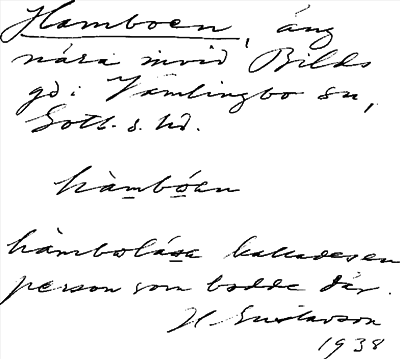 Hamboen, äng
nära invid Bilds
gd i Vamlingbo sn,
Gotl. s. hd.
hàmbóen
hàmbolása kallades en
person som bodde där.
H Gustavson
1938